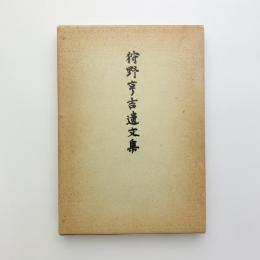 狩野亨吉遺文集